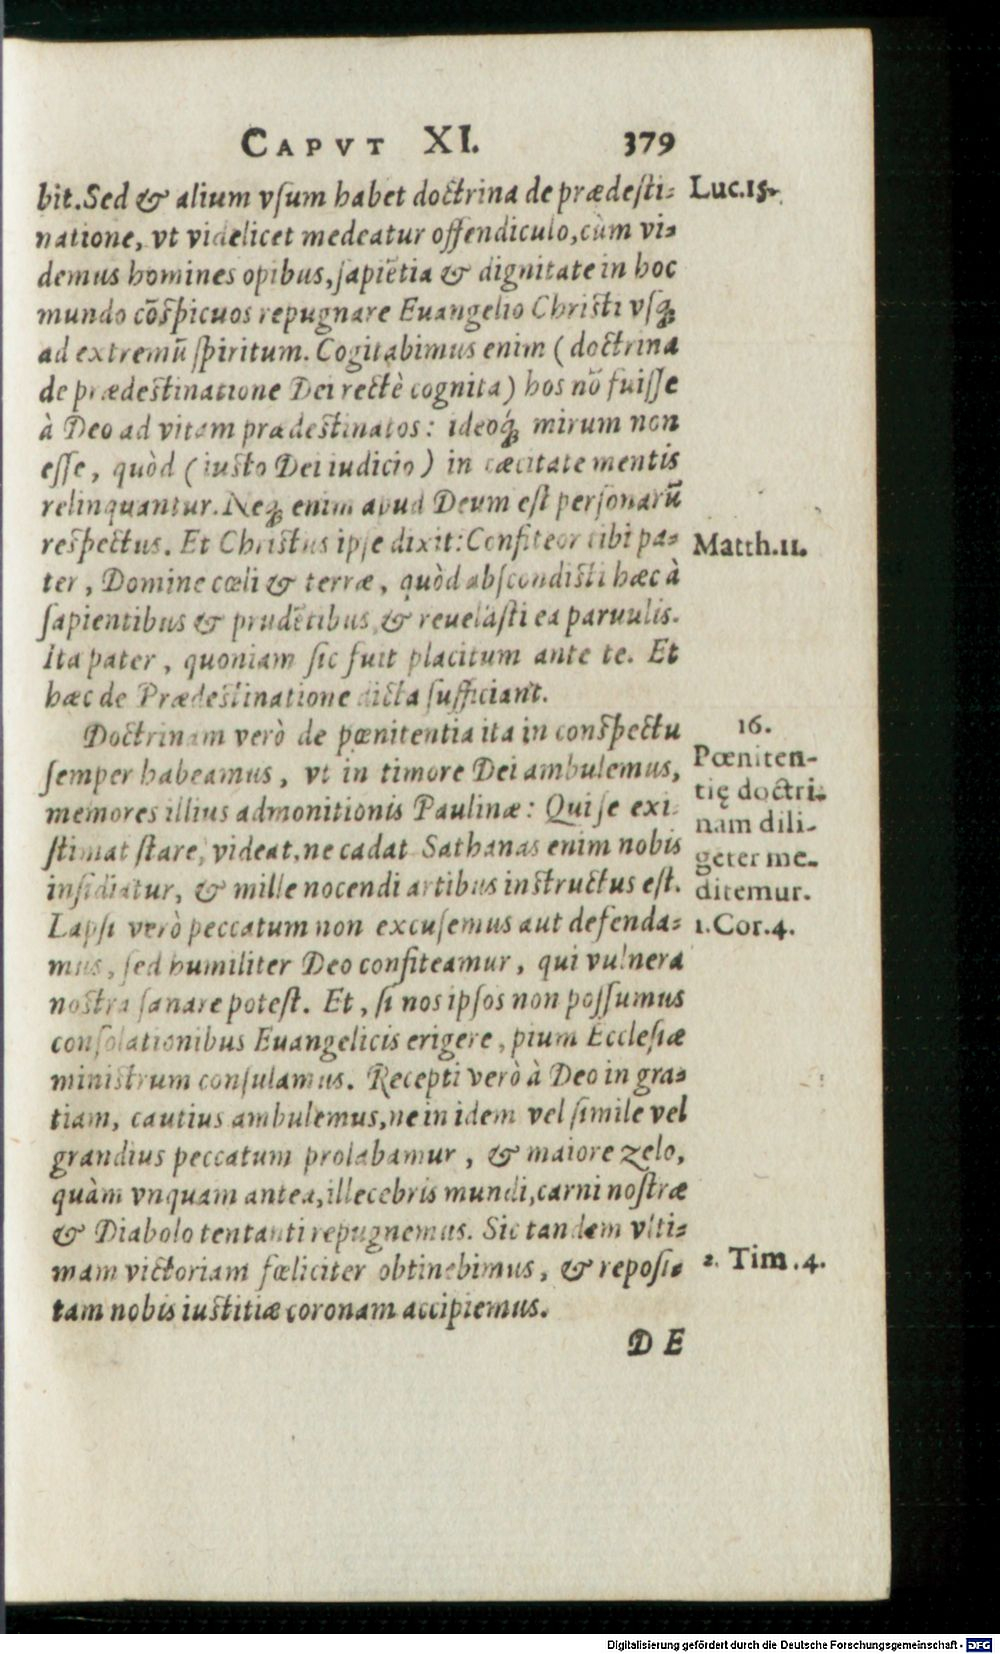 CAPVT XI. 379
bit. Sed & alium vſum habet doctrina de prædeſti- Luc.15.
natione, vt videlicet medeatur offendiculo, cùm vi-
demus homines opibus, ſapiẽtia & dignitate in hoc
mundo cõſpicuos repugnare Euangelio Chriſti vſq́;
ad extremũ ſpiritum. Cogitabimus enim (doctrina
de prædeſtinatione Dei rectè cognita) hos nõ fuiſſe
à Deo ad vitam prædeſtinatos: ideoq́; mirum non
eſſe, quòd (iuſto Dei iudicio) in cæcitate mentis
relinquantur. Neq; enim apud Deum eſt perſonarũ
reſpectus. Et Chriſtus ipſe dixit: Confiteor tibi pa- Matth.11.
ter, Domine cœli & terræ, quòd abſcondiſti hæc à
ſapientibus & prudẽtibus, & reuelaſti ea paruulis.
Ita pater, quoniam ſic fuit placitum ante te. Et
hæc de Prædeſtinatione dicta ſufficiant.
Doctrinam verò de pœnitentia ita in conſpectu
ſemper habeamus, vt in timore Dei ambulemus,
memores illius admonitionis Paulinæ: Qui ſe exi-
ſtimat ſtare, videat, ne cadat Sathanas enim nobis
inſidiatur, & mille nocendi artibus inſtructus eſt.
16.
Pœniten-
tię doctri-
nam dili-
gẽter me-
ditemur.
1.Cor.4.
Lapſi verò peccatum non excuſemus aut defenda-
mus, ſed humiliter Deo confiteamur, qui vulnera
noſtra ſanare poteſt. Et, ſi nos ipſos non poſſumus
conſolationibus Euangelicis erigere, pium Eccleſiæ
miniſtrum conſulamus. Recepti verò à Deo in gra-
tiam, cautius ambulemus, ne in idem vel ſimile vel
grandius peccatum prolabamur, & maiore zelo,
quàm vnquam antea, illecebris mundi, carni noſtræ
& Diabolo tentanti repugnemus. Sic tandem vlti-
mam victoriam fœliciter obtinebimus, & repoſi- 2. Tim.4.
tam nobis iuſtitiæ coronam accipiemus.
DE
Digitalisierung gefördert durch die Deutsche Forschungsgemeinschaft - DFG